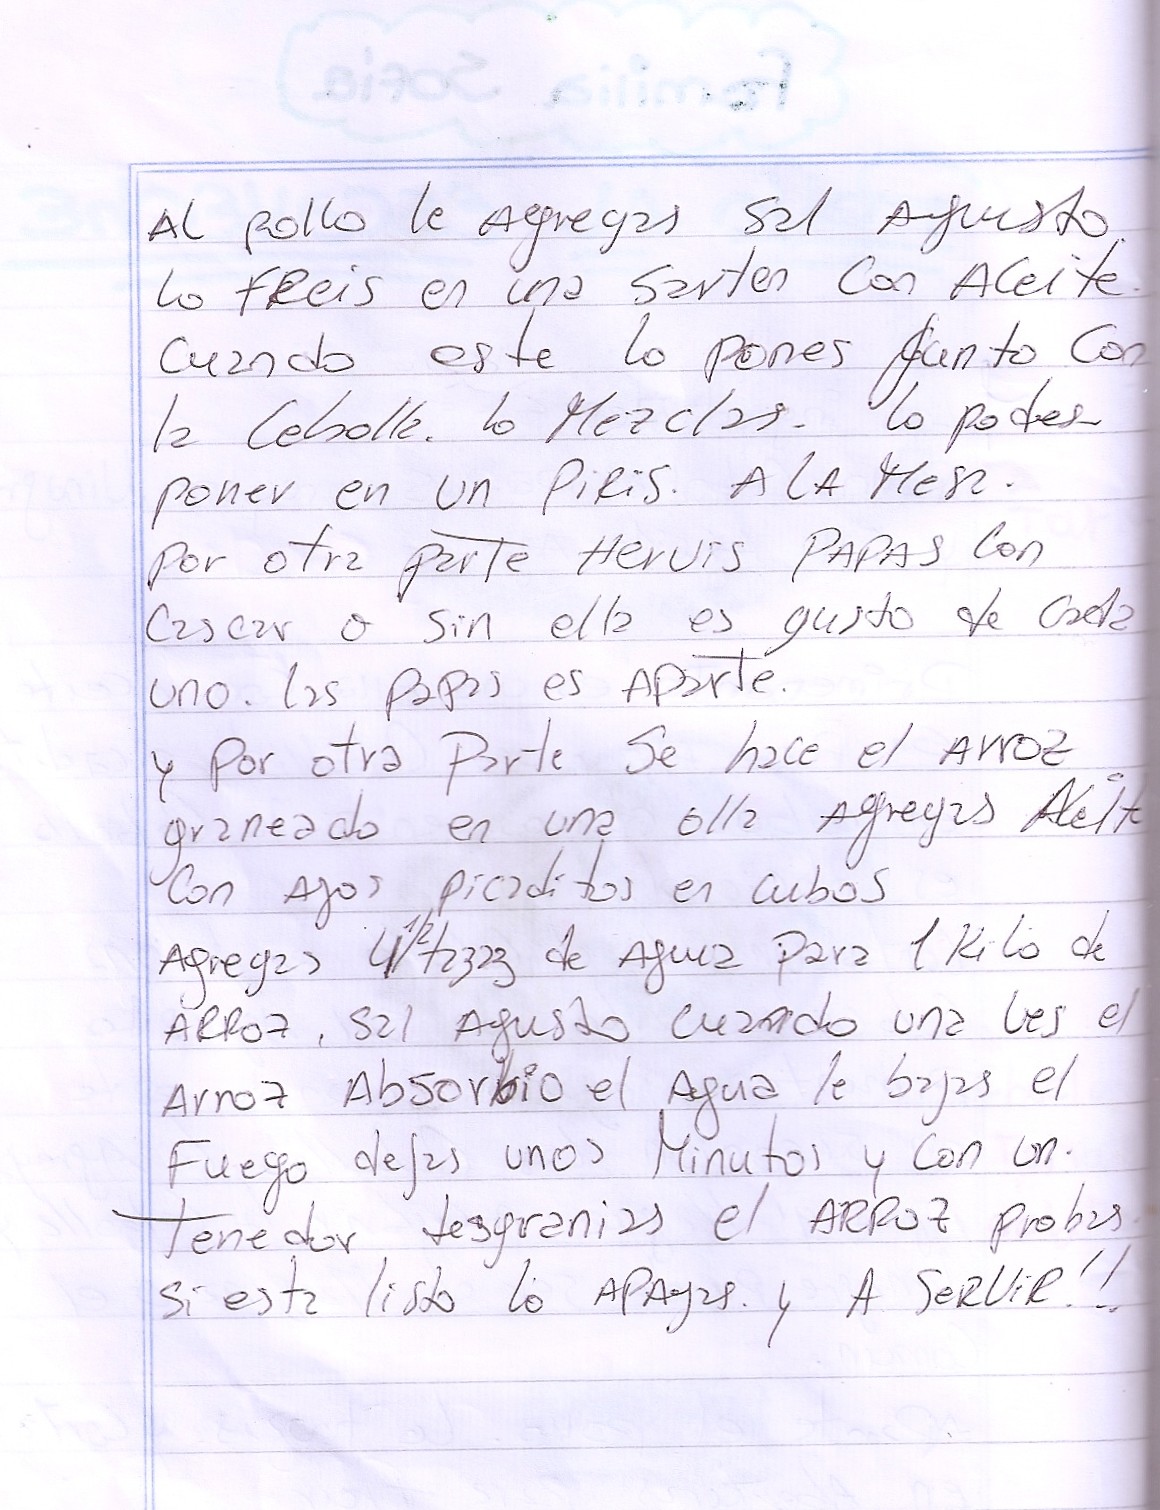 Familia Sofia
Al pollo le Agregas sal Agusto
lo FReis en una Sarten Con Aceite.
Cuando este lo pones junto Con
la Cebolla. lo Mezclas. lo podes
poner en un PiRiS. A lA Mesa.
por otra parte Hervis PAPAS Con
Cascar o sin ella es gusto de Cada
uno. las papas es Aparte.
y por otra Parte Se hace el Arroz
graneado en una olla Agregas Aceite
Con Ajos picaditos en cubos
Agregas 4 1/2 tazas de Agua Para 1 Kilo de
ARROZ, Sal Agusto cuando una ves el
Arroz Absorbio el Agua le bajas el
Fuego dejas unos Minutos y Con un.
Tenedor desgranias el ARROZ probas.
si esta listo lo APAgas. y A SeRViR!!